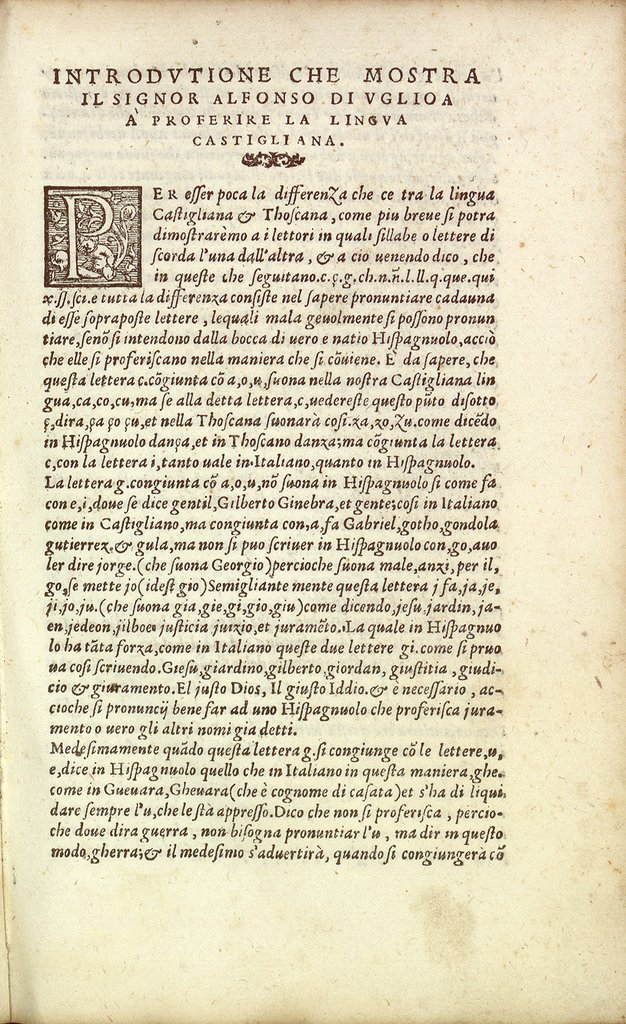 INTRODVTIONE CHE MOSTRA
IL SIGNOR ALFONSO DI VGLIOA
A PROFERIRE LA LINGVA
CASTIGLIANA.
PER eſſer poca la differenza che ce tra la lingua
Caſtigliana & Thoſcana, come piu breue ſi potra
dimoſtrarèmo a i lettori in quali ſillabe o lettere di
ſcorda l'una dall'altra, & a ciò uenendo dico, che
in queſte che ſeguitano.c.ç.g.ch.n.ñ.l.ll.q.que.qui
x.ſſ.ſci.e tutta la differenza conſiſte nel ſapere pronuntiare cadauna
di eſſe ſopra poſte lettere, lequali mala geuolmente ſi poſſono pronun
tiare, ſenõ ſi intendono dalla bocca di uero e natio Hiſpagnuolo, acciò
che elle ſi proferiſcano nella maniera che ſi cõuiene. E da ſapere, che
queſta lettera c.cõgiunta cõ a,o,u, ſuona nella noſtra Caſtigliana lin
gua,ca,co,cu,ma ſe alla detta lettera,c,uedereſte queſto pũto diſotto
ç,dira,ça ço çu,et nella Thoſcana ſuonarà coſi.za,zo,zu.come dicẽdo
in Hiſpagnuolo dança,et in Thoſcano danza;ma cõgiunta la lettera
c,con la lettera i,tanto uale in Italiano,quanto in Hiſpagnuolo.
La lettera g.congiunta cõ a,o,u,nõ ſuona in Hiſpagnuolo ſi come fa
con e,i,doue ſe dice gentil,Gilberto Ginebra,et gente;coſi in Italiano
come in Caſtigliano,ma congiunta con,a,fa Gabriel,gotho,gondola
gutierrez,& gula,ma non ſi puo ſcriuer in Hiſpagnuolo con,go,auo
ler dire jorge.(che ſuona Georgio)percioche ſuona male,anzi,per il,
go,ſe mette jo(ideſt gio)Semigliante mente queſta lettera j fa,ja,je,
ji.jo,ju.(che ſuona gia,gie,gi,gio,giu)come dicendo,jeſu,jardin,ja-
en,jedeon,jilboe juſticia juizio,et juramẽto..La quale in Hiſpagnuo
lo ha tãta forza,come in Italiano queſte due lettere gi.come ſi pruo
ua coſi ſcriuendo.Gieſu,giardino,gilberto,giordan, giuſtitia, giudi-
cio & giuramento.El juſto Dios, Il giuſto Iddio.& è neceſſario, ac-
cioche ſi pronuncij bene far ad uno Hiſpagnuolo che proferiſca jura-
mento o uero gli altri nomi gia detti.
Medeſimamente quãdo queſta lettera g.ſi congiunge cõ le lettere,u,
e,dice in Hiſpagnuolo quello che in Italiano in queſta maniera,ghe.
come in Gueuara,Gheuara(che è cognome di caſata)et s'ha di liqui
dare ſempre l'u,che le ſtà appreſſo.Dico che non ſi proferiſca, percio-
che doue dira guerra, non biſogna pronuntiar l'u, ma dir in queſto
modo,gherra;& il medeſimo s'aduertirà, quando ſi congiungerà cõ